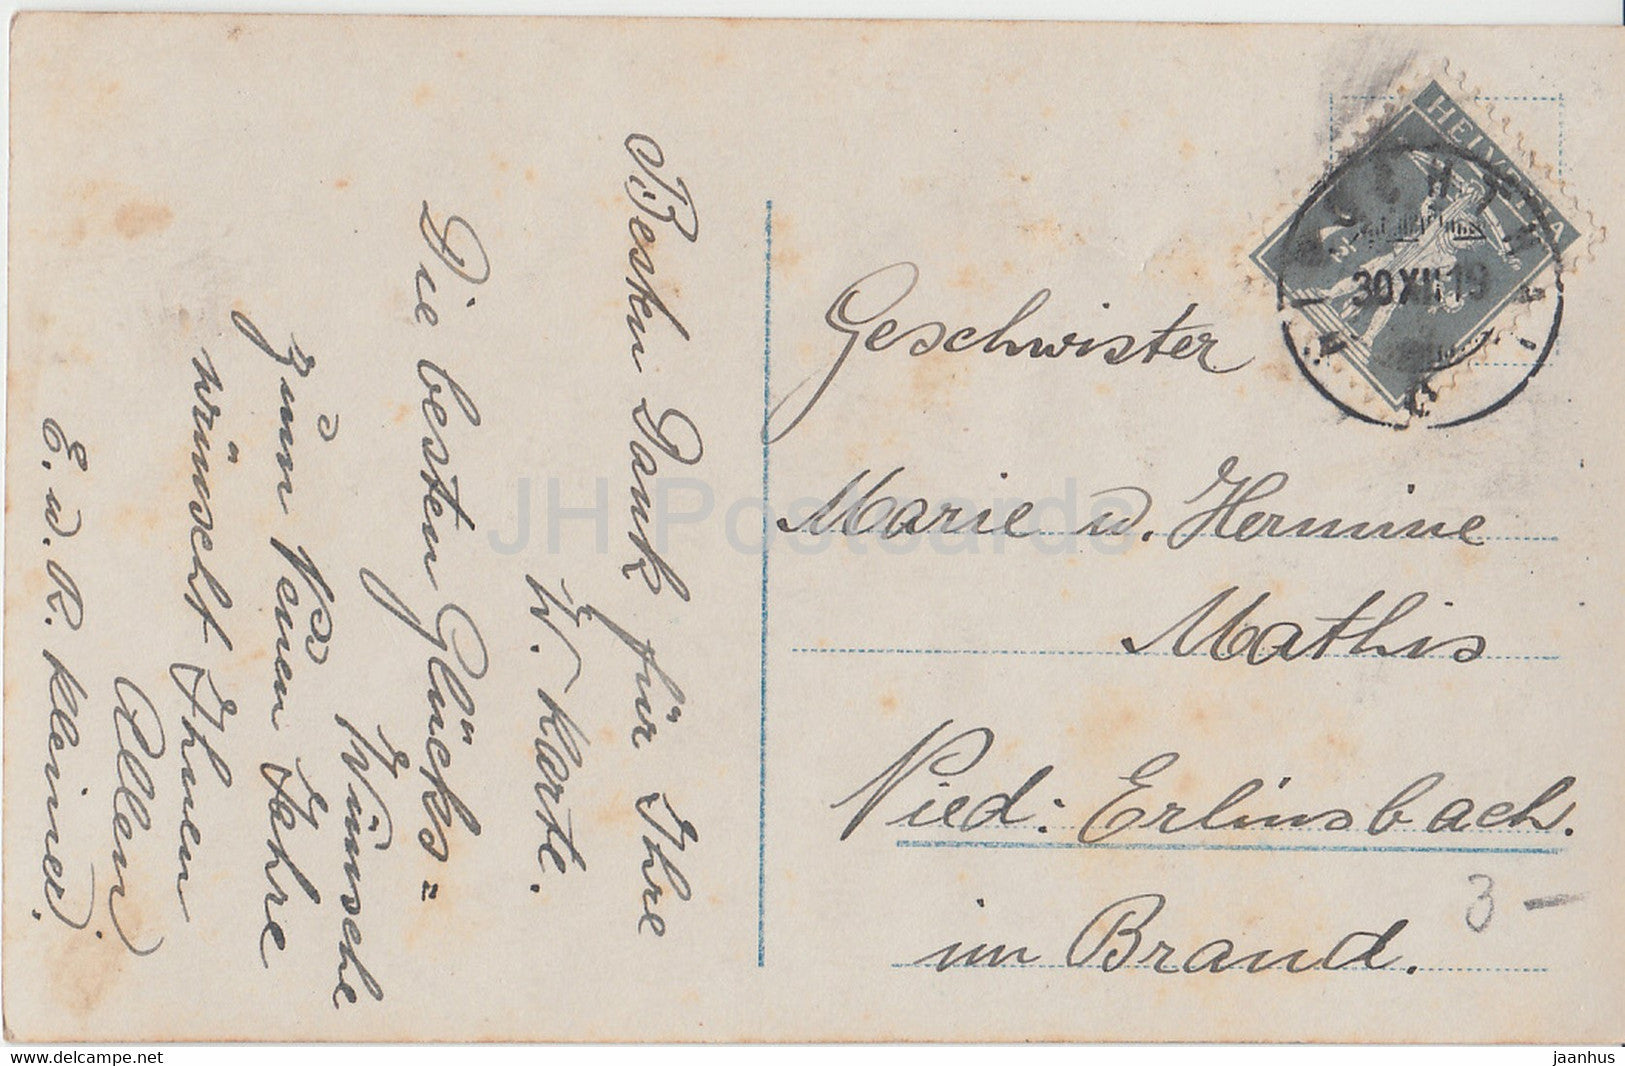 Besten Dank für Ihre
W. Karte.
Die besten Glücks=
Wünsche
zum Neuen Jahre
wünscht Ihnen
Allen
E. u. R. Kleiner.
HELVETIA
30 XII 19
Geschwister
Marie u. Hermine
Mathis
Nied: Erlinsbach.
im Brand.
3 –
JH Postcards
www.delcampe.net
jaanhus